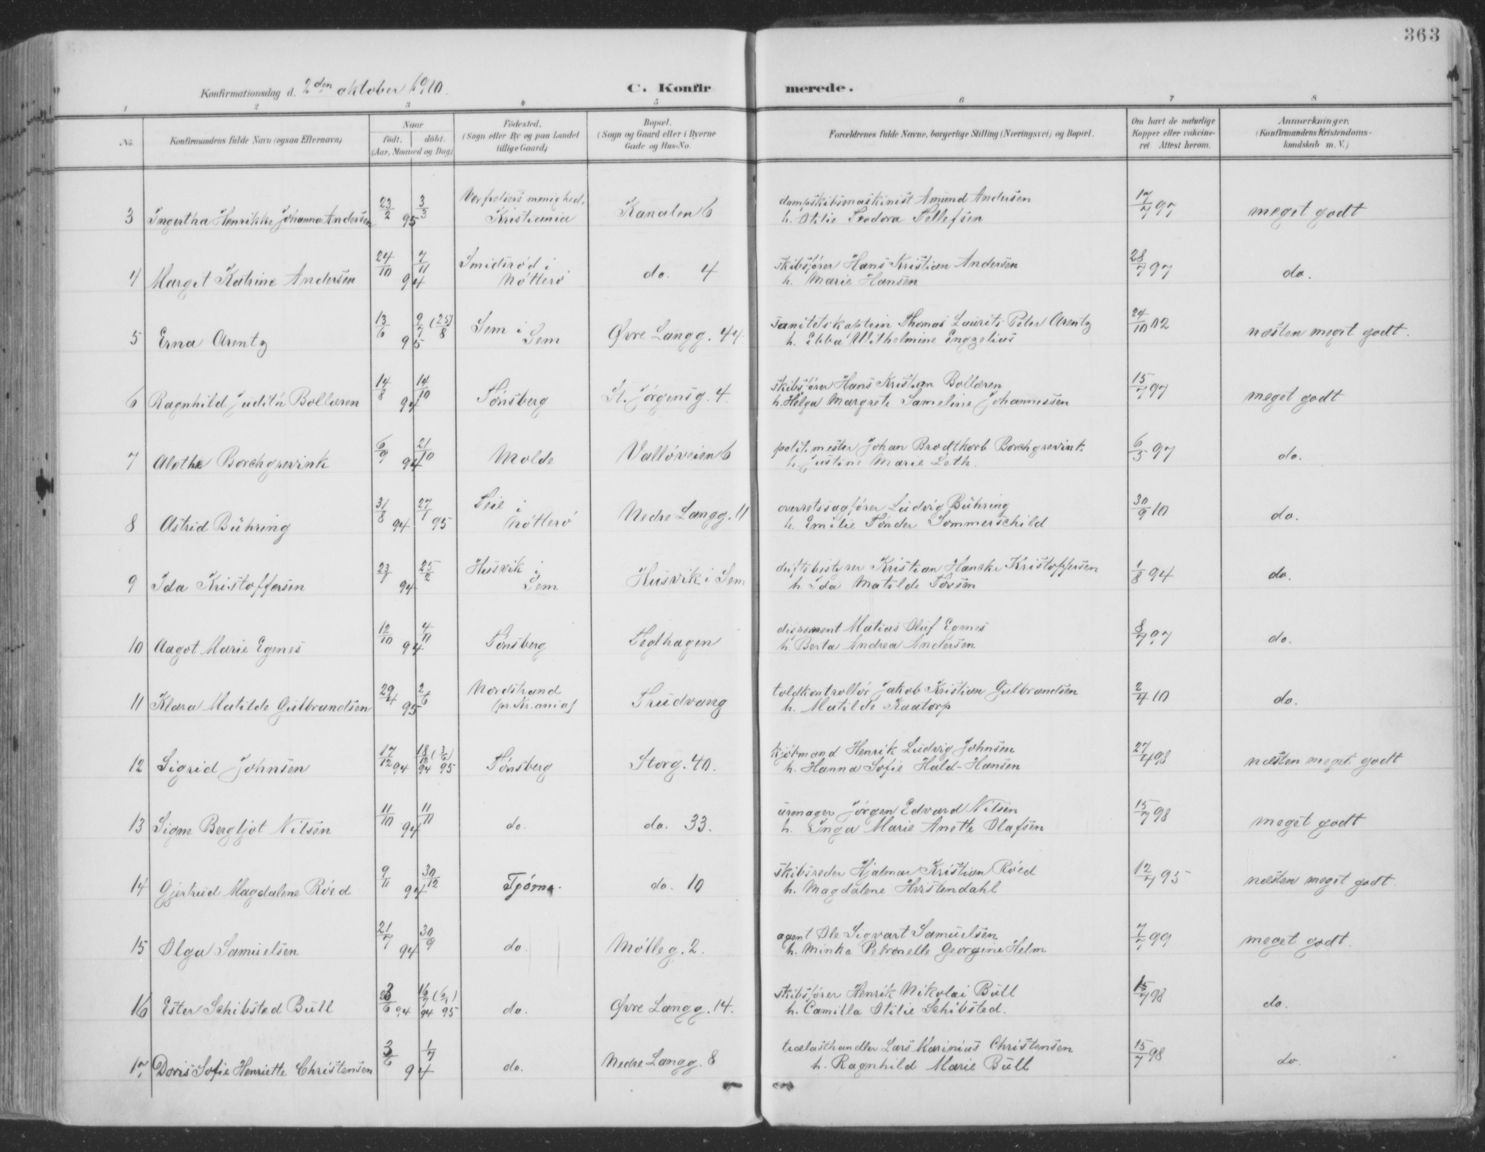 363
Konfirmationsdag d. 2den oktober 1910.
C. Konfirmerede.
1 2 3 4 5 6 7 8
No. Konfirmandens fulde Navn (ogsaa Efternavn) Naar født. døbt. (Aar, Maaned og Dag) Fødested. (Sogn eller By og paa Landet tillige Gaard) Bopæl. (Sogn og Gaard eller i Byerne Gade og Hus-No. Forældrenes fulde Navne, borgerlige Stilling (Næringsvei) og Bopæl. Om havt de naturlige Kopper eller vaccineret Attest herom. Anmerkninger. (Konfirmandens Kristendomskundskab m. V.)
3 Ingertha Henrikke Johanna Andersen 23/2 95 3/3 Vor frelsers menighed, Kristiania Kanalen 6 dampskibsmaskinist Amund Andersen 17/7 97 meget godt
h. Otilie Teodora Tellefsen
4 Margit Katrine Andersen 24/10 94 4/11 Smidsrød i Nøtterø do. 4 skibsfører Hans Kristian Andersen 28/7 97 do.
h. Marie Hansen
5 Erna Arentz 13/6 95 9/7 (25/8) Sem i Sem Øvre Langg. 44. sanitetskaptein Thomas Laurits Peter Arentz 24/10 02 næsten meget godt.
h. Ebba Wilhelmine Engzelius
6 Ragnhild Judith Bollæren 14/8 94 14/10 Tønsberg St. Jørgensg. 4. skibsfører Hans Kristian Bollæren 15/7 97 meget godt
h. Helga Margrete Sameline Johannessen
7 Alethe Borchgrevink 6/9 94 21/10 Molde Valløveien 6 politimester Johan Brodtkorb Borchgrevink 6/5 97 do.
h. Justine Marie Leth.
8 Astrid Bühring 31/8 94 27/1 95 i Nøtterø Nedre Langg. 11 overretssagfører Ludvig Bühring 30/9 10 do.
h. Emilie Tønder Sommerschild
9 Ida Kristoffersen 23/7 94 25/2 Husvik i Sem Husvik i Sem driftsbestyrer Kristian Hancke Kristoffersen 1/8 94 do.
h. Ida Matilde
10 Aagot Marie Egenes 12/10 94 4/11 Tønsberg Teglhagen Matias Oluf Egenes 8/7 97 do.
h. Berta Andrea Andersen
11 Klara Matilde Gulbrandsen 29/4 95 2/6 Nordstrand (pr. Kr.ania) Trudvang toldkontrollør Jakob Kristian Gulbrandsen 2/4 10 do.
h. Matilde Raatorp
12 Sigrid Johnsen 17/12 94 18/12 94 (3/6) 95 Tønsberg Storg. 40. kjøbmand Henrik Ludvig Johnsen 27/4 98 næsten meget godt
h. Hanna Sofie Hald-Hansen
13 Signe Bergljot Nilsen 11/10 94 11/11 do. do. 33. urmager Jørgen Edvard Nilsen 15/7 98 meget godt
h. Inga Marie Anette Olafsen
14 Gjertrud Magdalene Røed 9/11 94 30/12 Tjømø. do. 10 skibsreder Hjalmar Kristian Røed 12/7 95 næsten meget godt.
h. Magdalene Hvistendahl
15 Olga Samuelsen 21/7 94 30/9 do. Mølleg. 2. agent Ole Sigvart Samuelsen 7/7 99 meget godt.
h. Minka Petronelle Georgine Holm
16 Ester Schibsted Bull 94 94 95 do. Øvre Langg. 14. skibsfører Henrik Nikolai Bull 15/7 98 do.
h. Camilla Otilie Schibsted.
17 Doris Sofie Henriette Christensen 3/6 94 1/7 do. Nedre Langg. 8 trælasthandler Lars Marinius Christensen 15/7 98 do.
h. Ragnhild Marie Bull